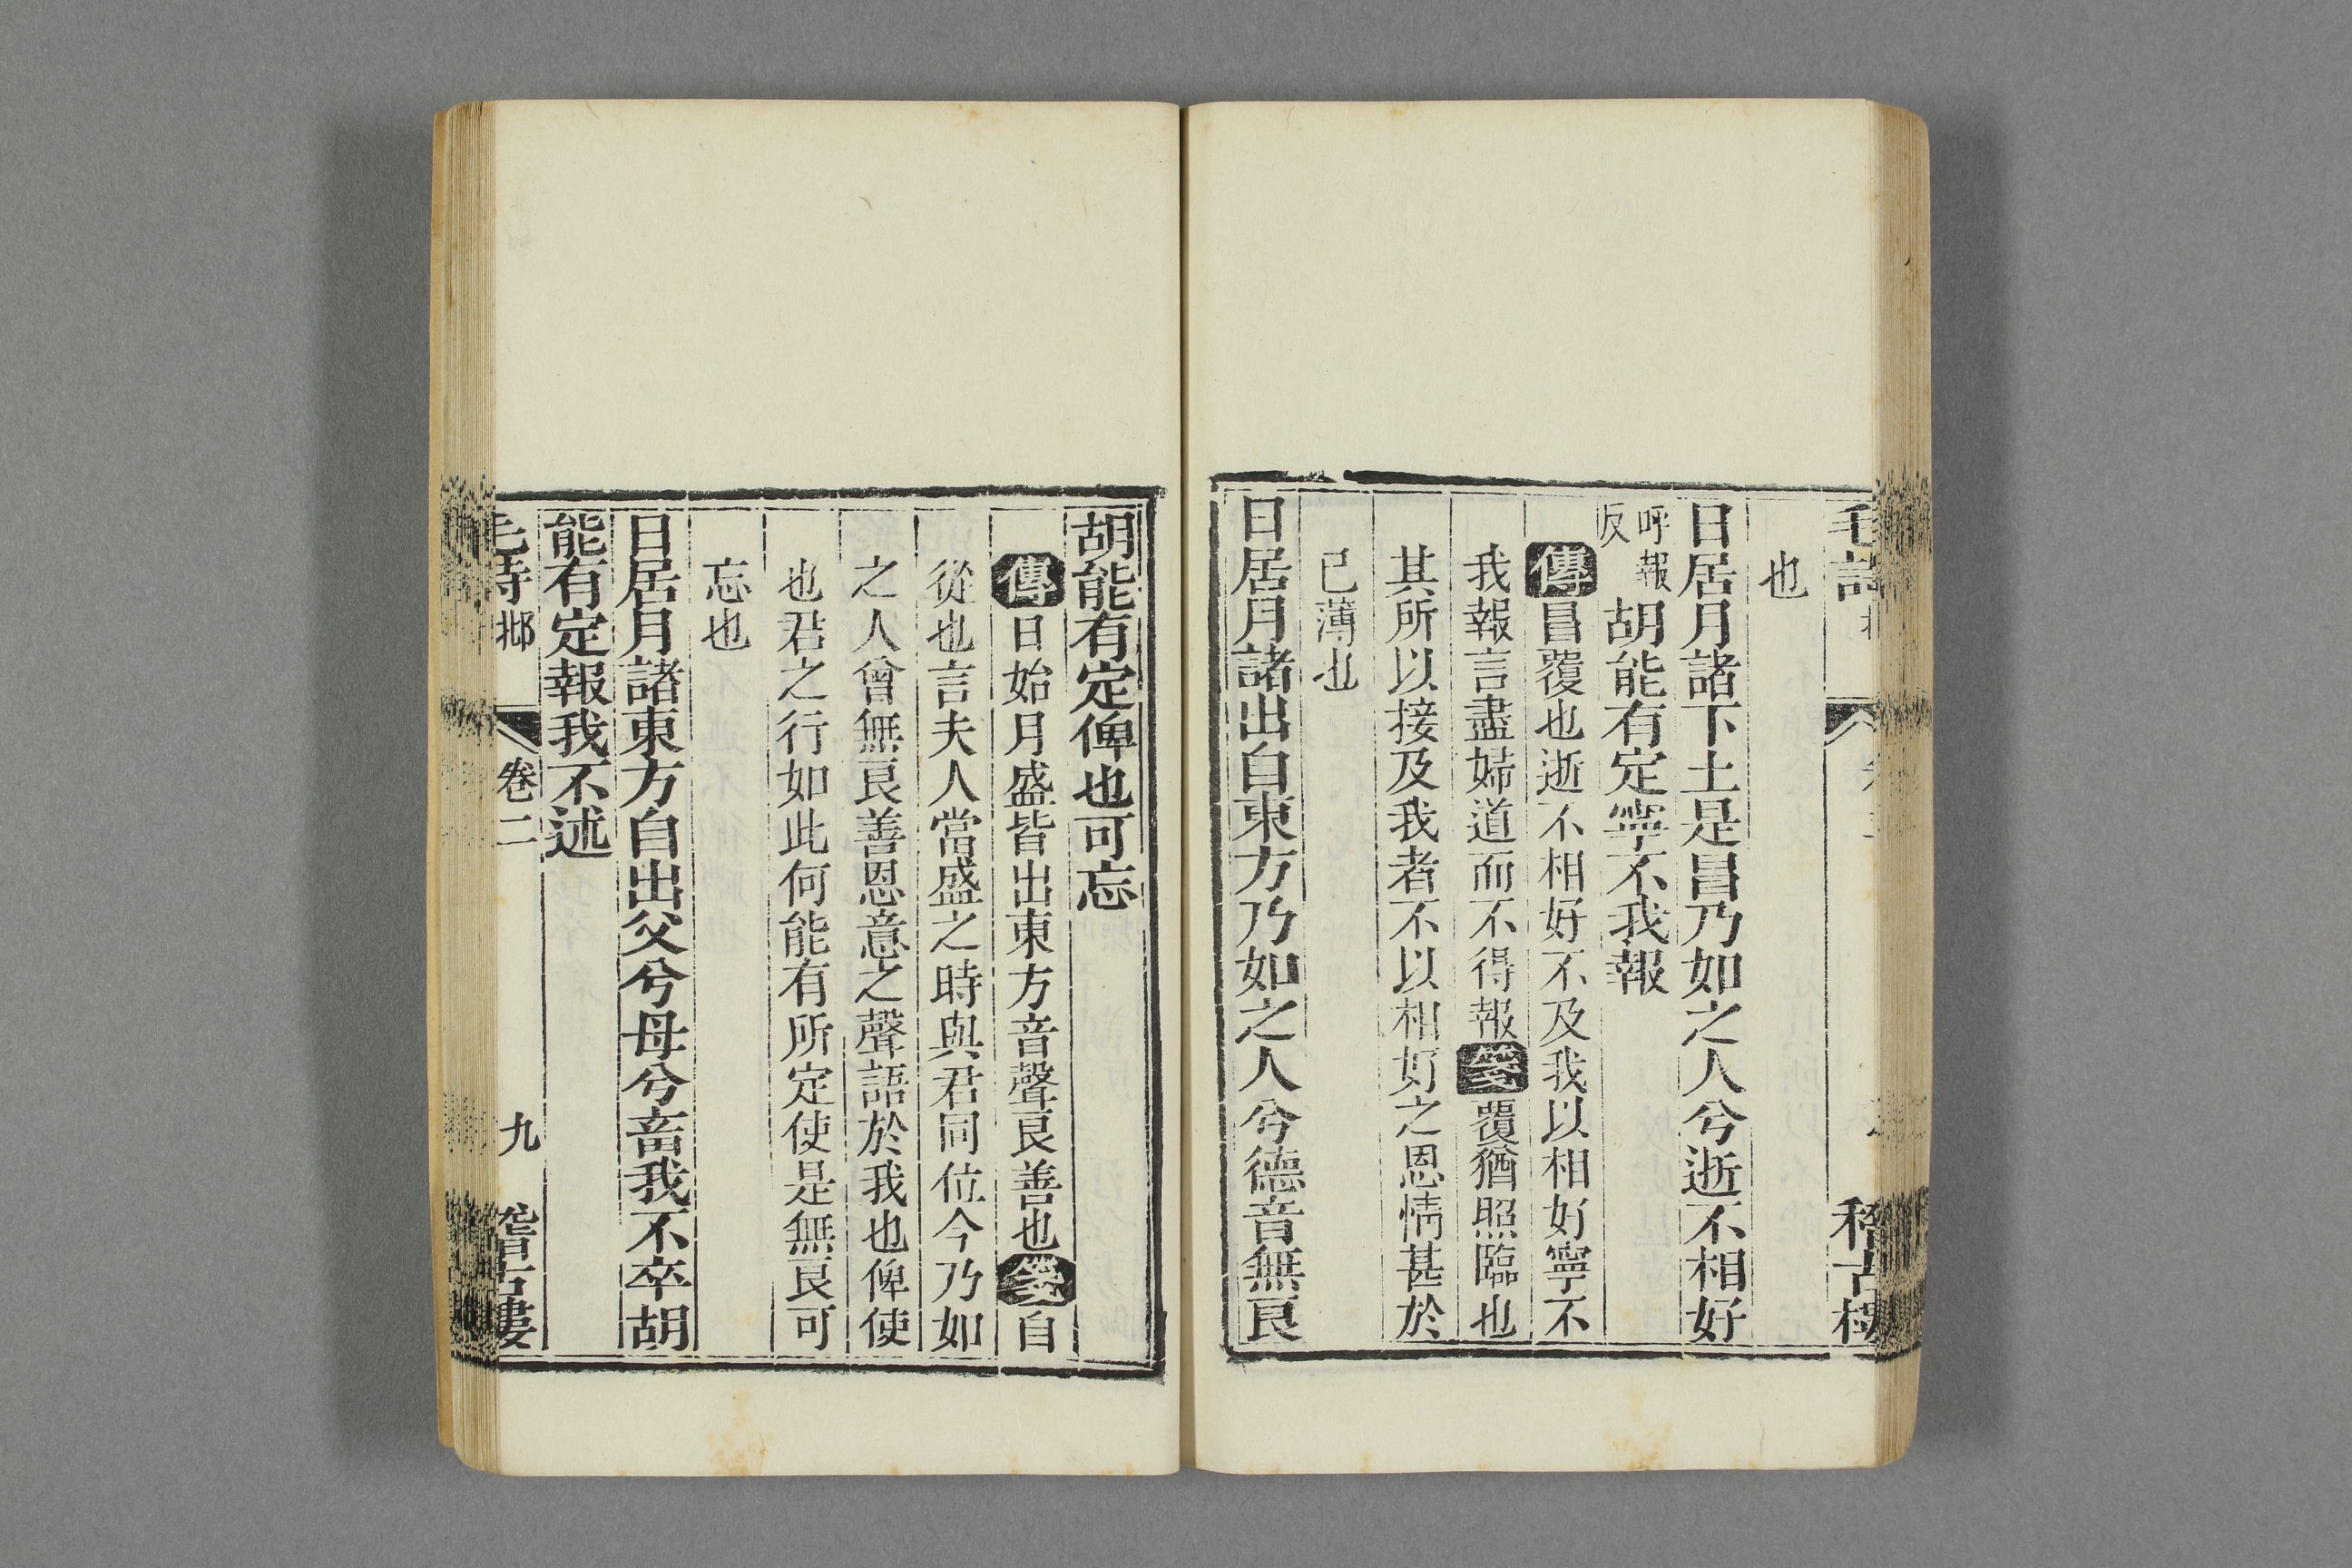 毛詩
稽古樓
也
日居月諸下土是冒乃如之人兮逝不相好
呼報反胡能有定寧不我報
傳冒覆也逝不相好不及我以相好寧不
我報言盡婦道而不得報箋覆猶照臨也
其所以接及我者不以相好之恩情甚於
已薄也
日居月諸出自東方乃如之人兮德音無良
胡能有定俾也可忘
傳日始月盛皆出東方音聲良善也箋自
從也言夫人當盛之時與君同位今乃如
之人曾無良善恩意之聲語於我也俾使
也君之行如此何能有所定使是無良可
忘也
日居月諸東方自出父兮母兮畜我不卒胡
能有定報我不述
毛詩邶 卷二 九 稽古樓